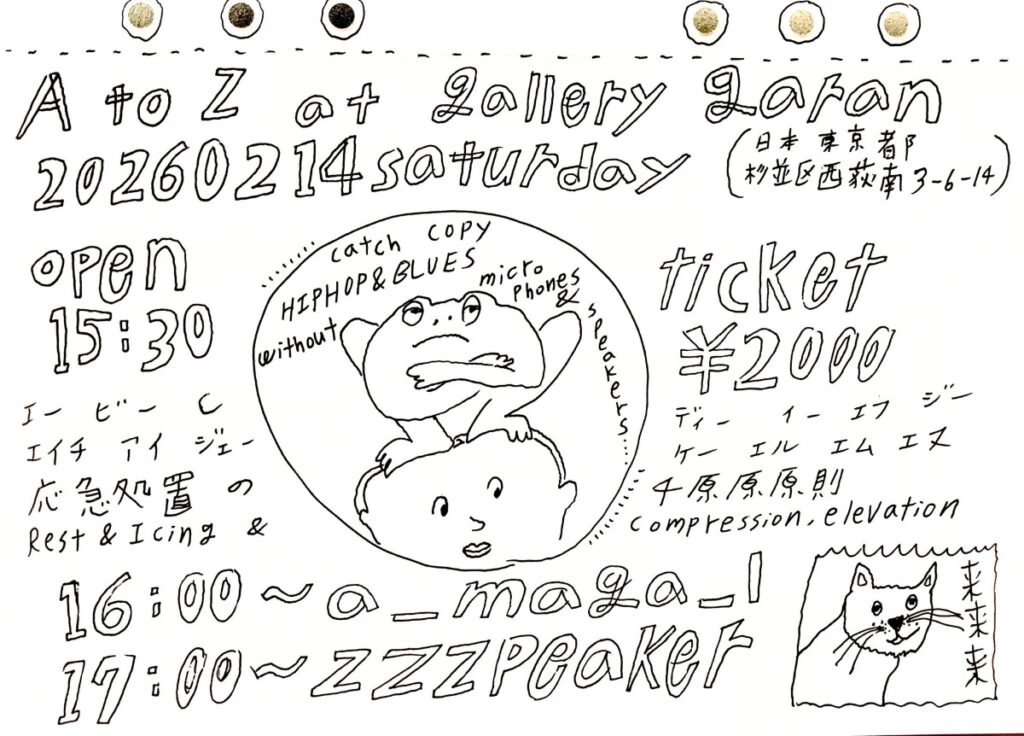 A to Z at gallery garan
20260214 saturday
(日本 東京都
杉並区西荻南3-6-14)
open
15:30
catch copy
HIPHOP&BLUES
without
micro
phones
&
speakers...
ticket
¥2000
エー ビー し
エイチ アイ ジェー
応急処置 の
Rest & Icing &
ディー イー エフ ジー
ケー エル エム エヌ
4原原原則
compression, elevation
16:00~a_maga_l
17:00~zzzpeaker
来来来